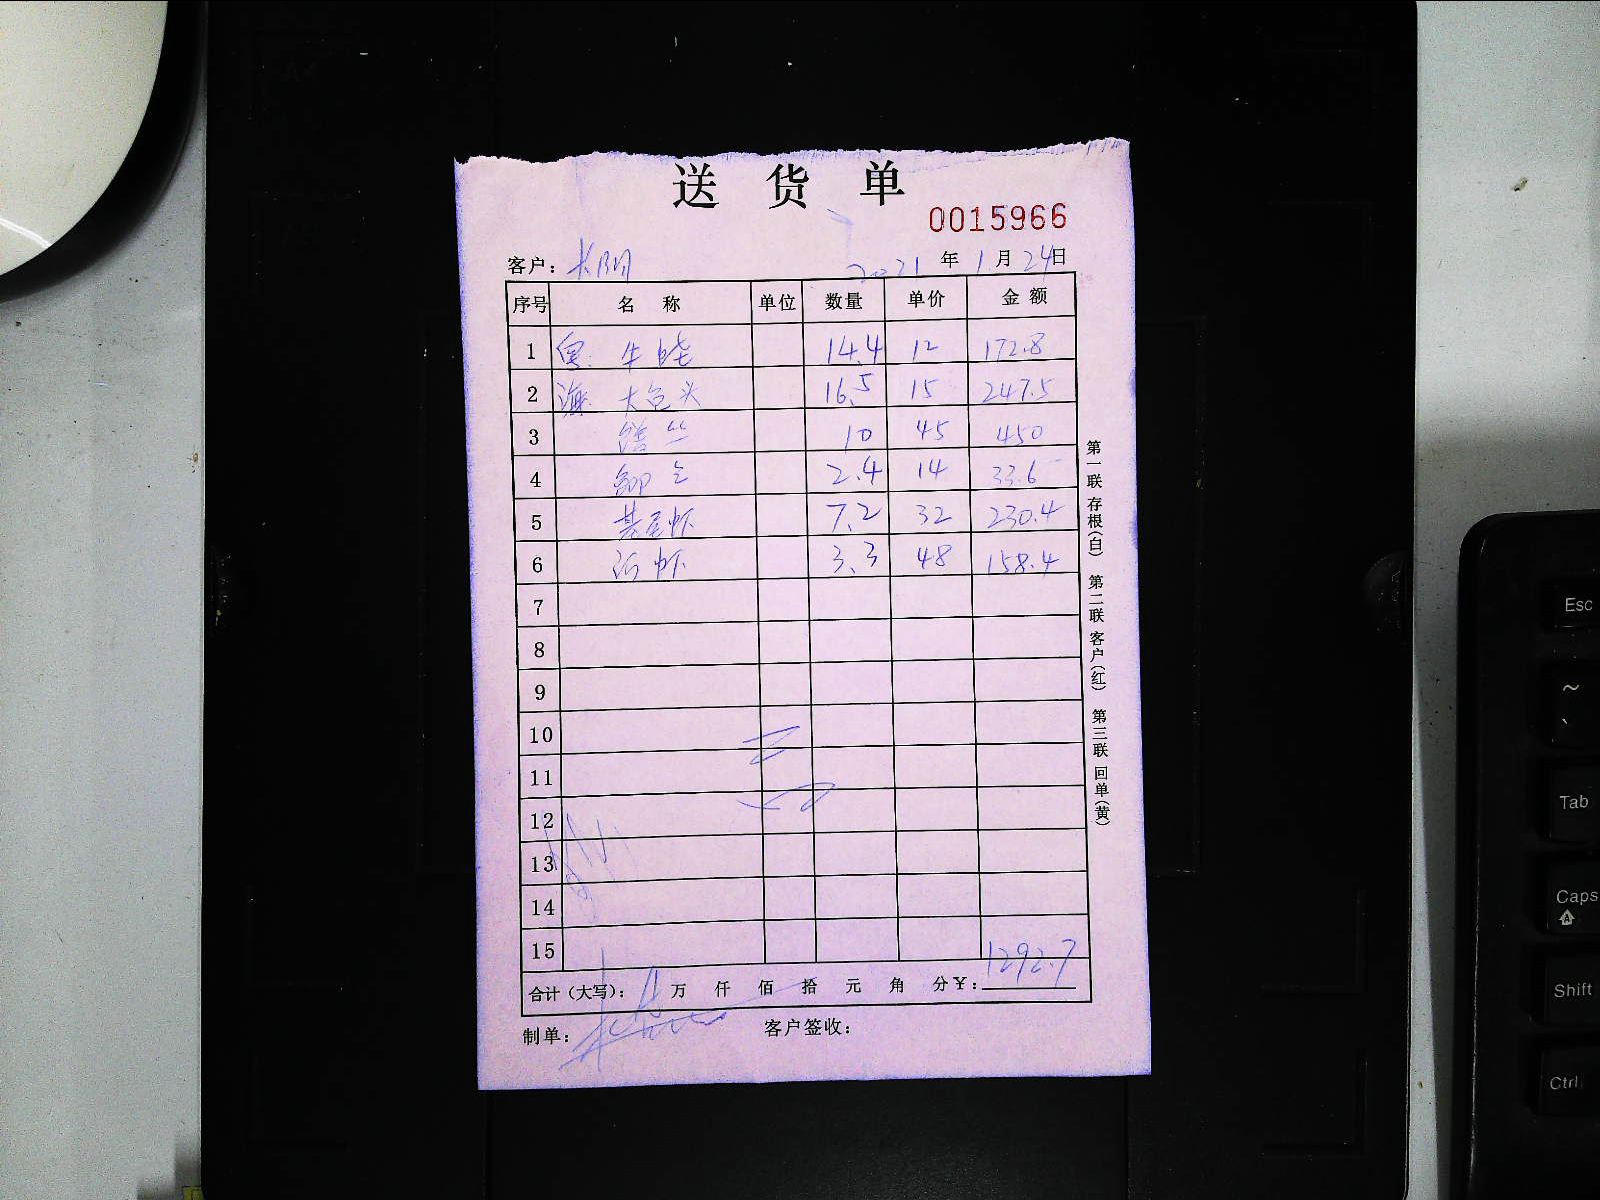 送 货 单
0015966
客户: 长阴 2021 年 1 月 24 日
序号 名 称 单位 数量 单价 金 额
1 牛蛙 14.4 12 172.8
2 海 大包头 16.5 15 247.5
3 10 45 450
4 2.4 14 33.6
5 基尾虾 7.2 32 230.4
6 河虾 3.3 48 158.4
7
8
9
10
11
12
13
14
15
合计(大写): 万 仟 佰 拾 元 角 分 ¥: 1292.7
制单: 客户签收:
第一联 存根(白) 第二联 客户(红) 第三联 回单(黄)
Esc
~
`
Tab
Caps
Shift
Ctrl